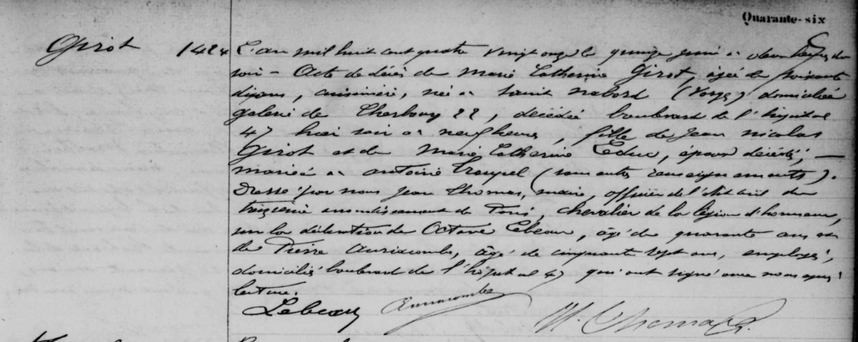 Quarante-six
Girot 1424 L'an mil huit cent quatre vingt onze le quinze juin à deux heures du
soir - Acte de décès de Marie Catherine Girot, âgée de soixante
dix ans, cuisinière, née à Saint Nabord (Vosges) domiciliée
galerie de Cherbourg 22, décédée boulevard de l'hôpital
47 hier soir à neuf heures, fille de Jean Nicolas
Girot et de Marie Catherine Leduc, époux décédés, —
mariée à Antoine (sans autres renseignements).
Dressé par nous Jean Thomas, maire, officier de l'état civil du
treizième arrondissement de Paris, chevalier de la légion d'honneur,
sur la déclaration de Octave Lebeau, âgé de quarante ans et
de Pierre Aurincombe, âgé de cinquante sept ans, employés,
domiciliés boulevard de l'hôpital 47 qui ont signé avec nous après
lecture.
Lebeau Thomas